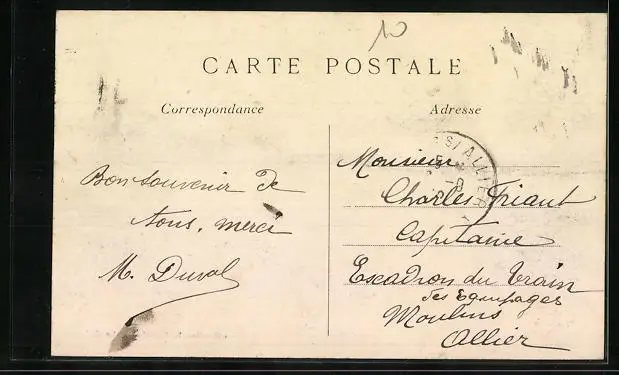 10
CARTE POSTALE
Correspondance
Adresse
Bon souvenir de
tous, merci
M. Duval
S/ALLIER
Monsieur
Charles Friant
Capitaine
Escadron du train
des Equipages
Moulins
Allier